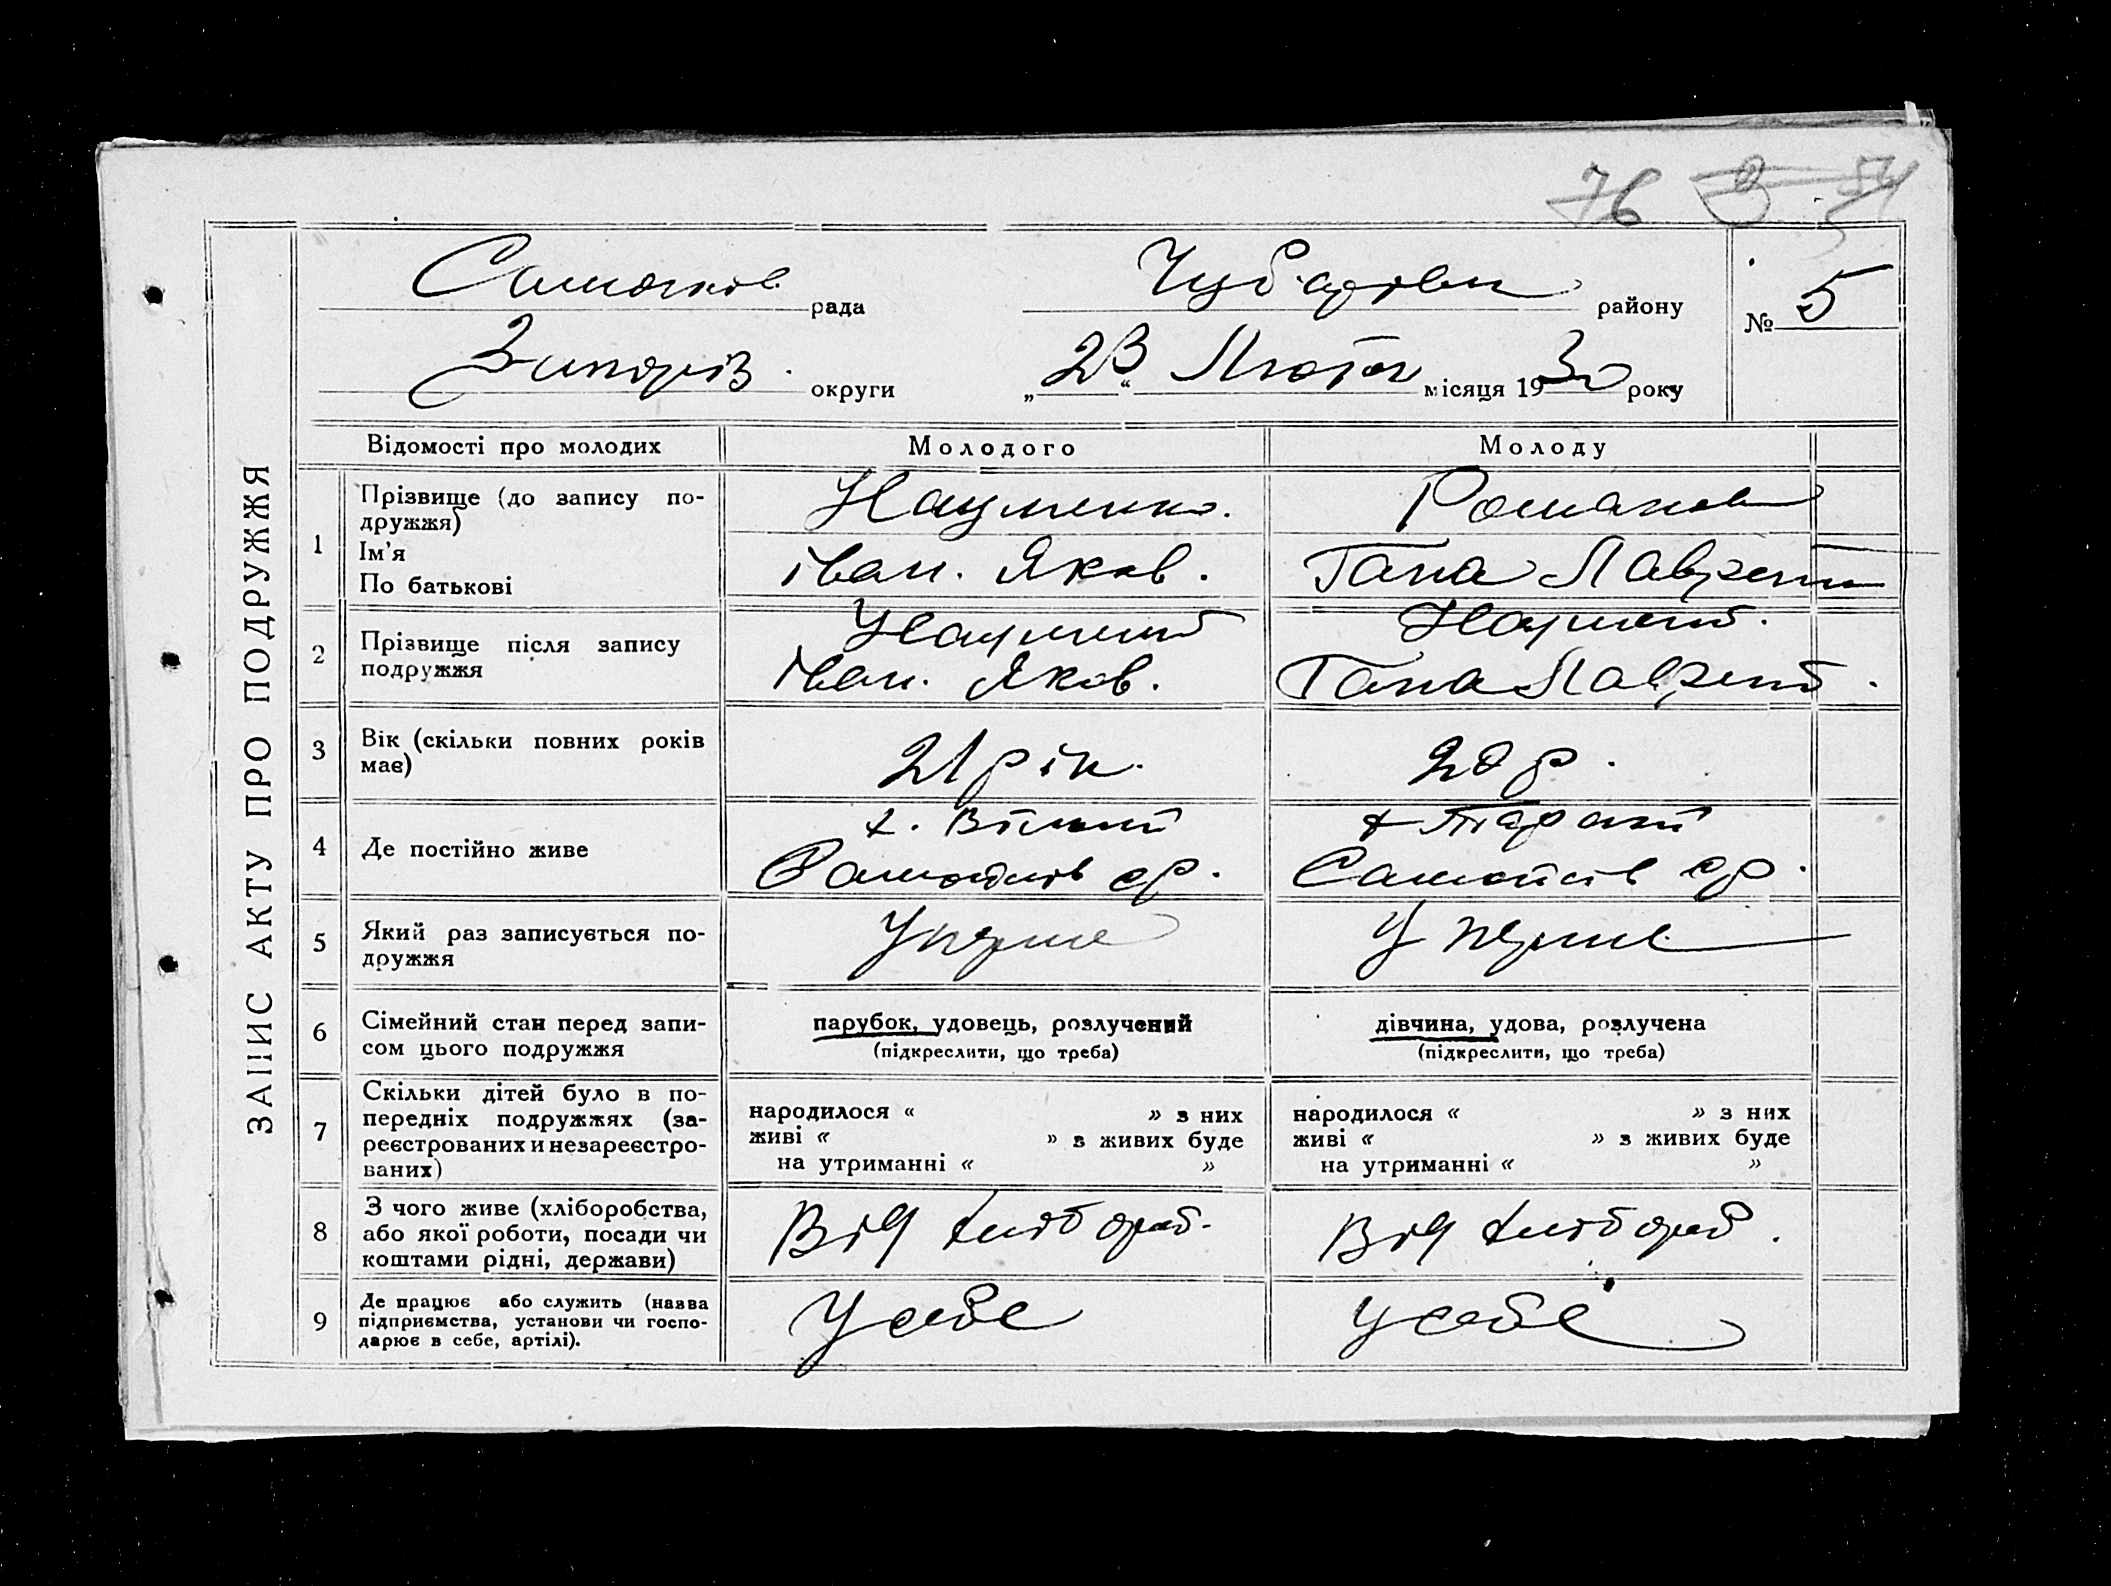 76
ЗАПИС АКТУ ПРО ПОДРУЖЖЯ
рада
Чубарівськ району
№ 5
Запоріз. округи
„23“ Лютого місяця 1930 року
Відомості про молодих
Молодого
Молоду
1
Прізвище (до запису по-
дружжя)
Ім'я
По батькові
Науменко.
Іван. Яков.
Романов
Гана Лаврент
2
Прізвище після запису
подружжя
Науменко
Іван. Яков.
Науменко.
Гана Лаврент.
3
Вік (скільки повних років
має)
21 рік.
20 р.
4
Де постійно живе
х. Вільний
с р.
х
с р.
5
Який раз записується по-
дружжя
Уперше
У перше
6
Сімейний стан перед запи-
сом цього подружжя
парубок, удовець, розлучений
(підкреслити, що треба)
дівчина, удова, розлучена
(підкреслити, що треба)
7
Скільки дітей було в по-
передніх подружжях (за-
реєстрованих и незареєстро-
ваних)
народилося « » з них
живі « » з живих буде
на утриманні « »
народилося « » з них
живі « » з живих буде
на утриманні « »
8
З чого живе (хліборобства,
або якої роботи, посади чи
коштами рідні, держави)
Від хлібороб.
Від хлібороб.
9
Де працює або служить (назва
підприємства, установи чи госпо-
дарює в себе, артілі).
У себе
У себе